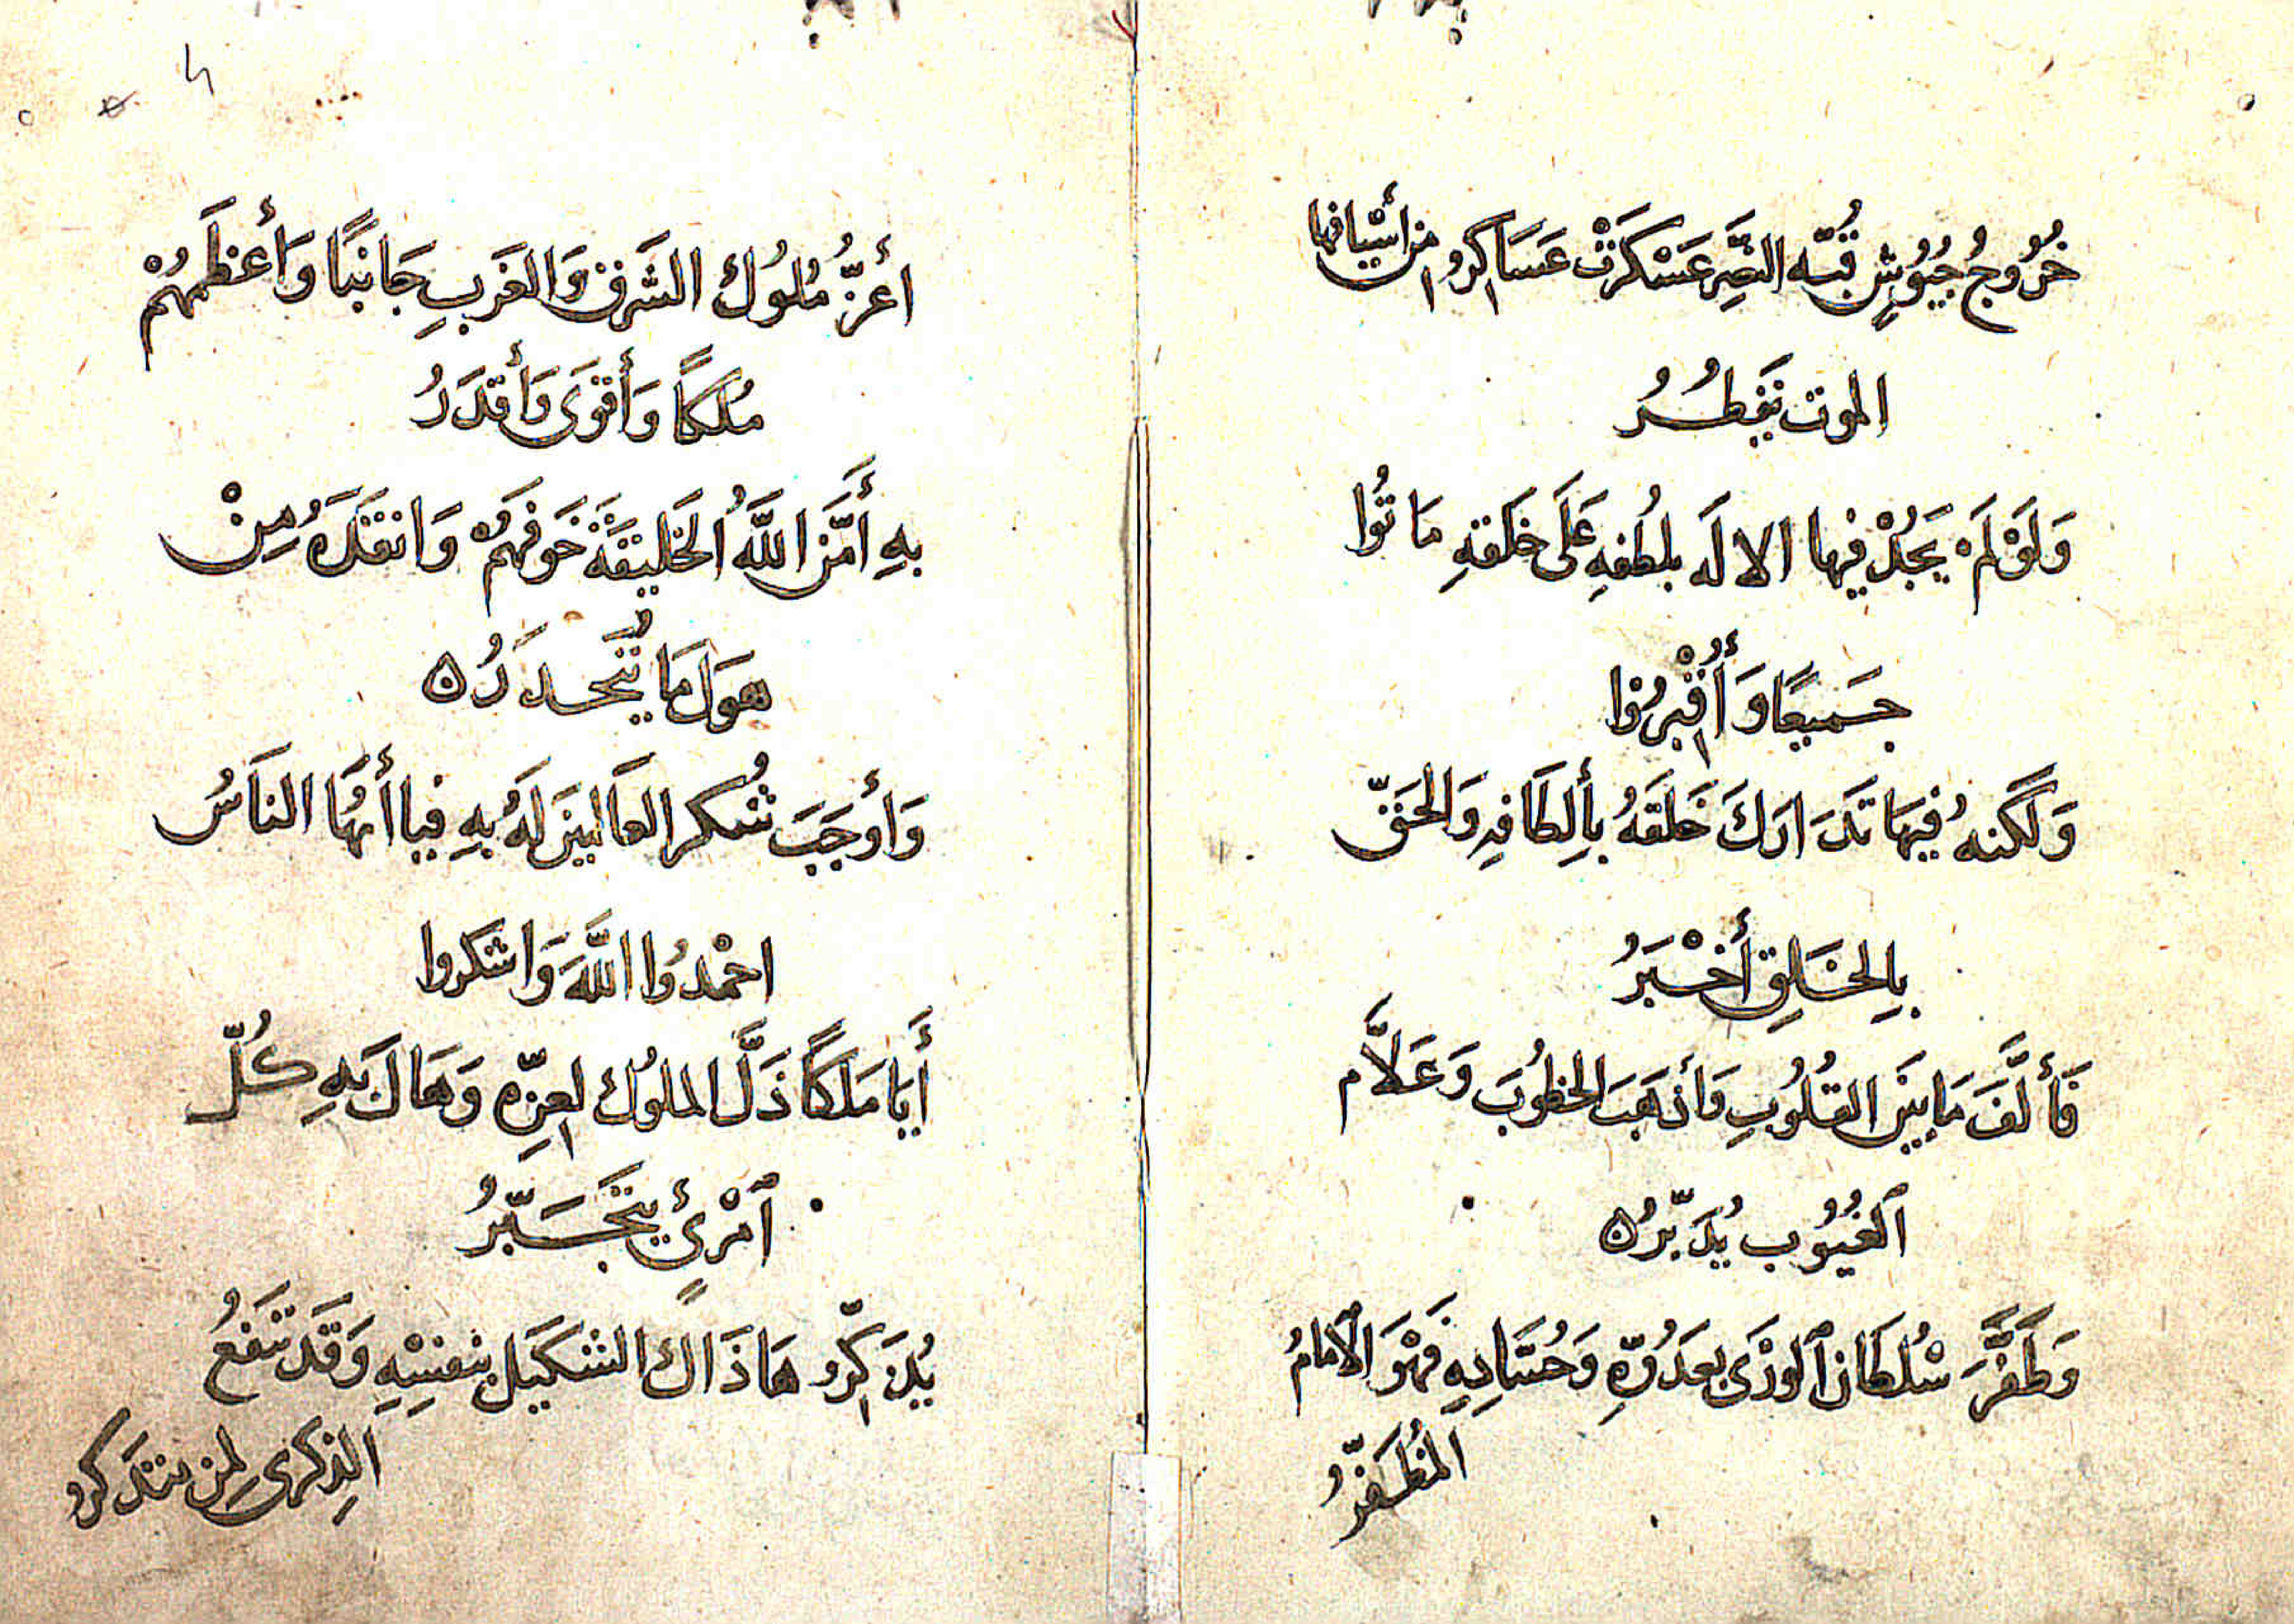 خُرُوجُ جُيُوشٍ قُبّه النَّصِر عَسْكَرَتْ عَسَاكِرُ من أَسْيافها
الموت تَفطُرُ
وَلَوْ لَمْ يَجُدْ فيها الالَه بلُطفِهِ عَلَى خَلقهِ مَا تُوا
جَميعًا وَأُقْبِرُوا
وَلَكنهُ فيهَا تَدَارَكَ خَلقَهُ بِأَلِطَافِهِ وَالحَقّ
بِالخَلقِ أَخْبَرُ
فَأَلَّفَ مَا بَينَ القُلُوبِ وَأَذهَبَ الخطُوبَ وَعَلاَّم
ٱلغُيُوب يُدَبّرُ ه
وَظَفَّرَ سُلطَان ٱلوَرَى بعَدُوّهِ وَحُسَّادِهِ فَهْوَ الإمَامُ
المُظَفّرُ
أعَزُّ مُلُوك الشَرق وَالغَربِ جَانبًا وَأعظَمهُمْ
مُلكًا وَأَقوَى وَأَقدَرُ
بهِ أَمَّنَ اللَّهُ الخَليقَةَ خَوفَهُمْ وَانقذَهُ مِنْ
هَولَ مَا يُتَحَدَرُ ه
وَأَوجَبَ شُكر العَالمينَ لَهُ بهِ فيا أَيهُّا النَاسُ
احْمدُوا اللَّهَ وَاشكروا
أَيَا مَلكًا ذَلَّ الملوُك لعِزّه وَهَا لَ بهِ كُلّ
ٱمْرئٍ يَتَجَبّرُ
يُذَكِّرُ هَا ذَاكَ الشَكيَل بنفسْهِ وَقَد تَنفَعُ
الذِكرى لمِن يتذَكرُ